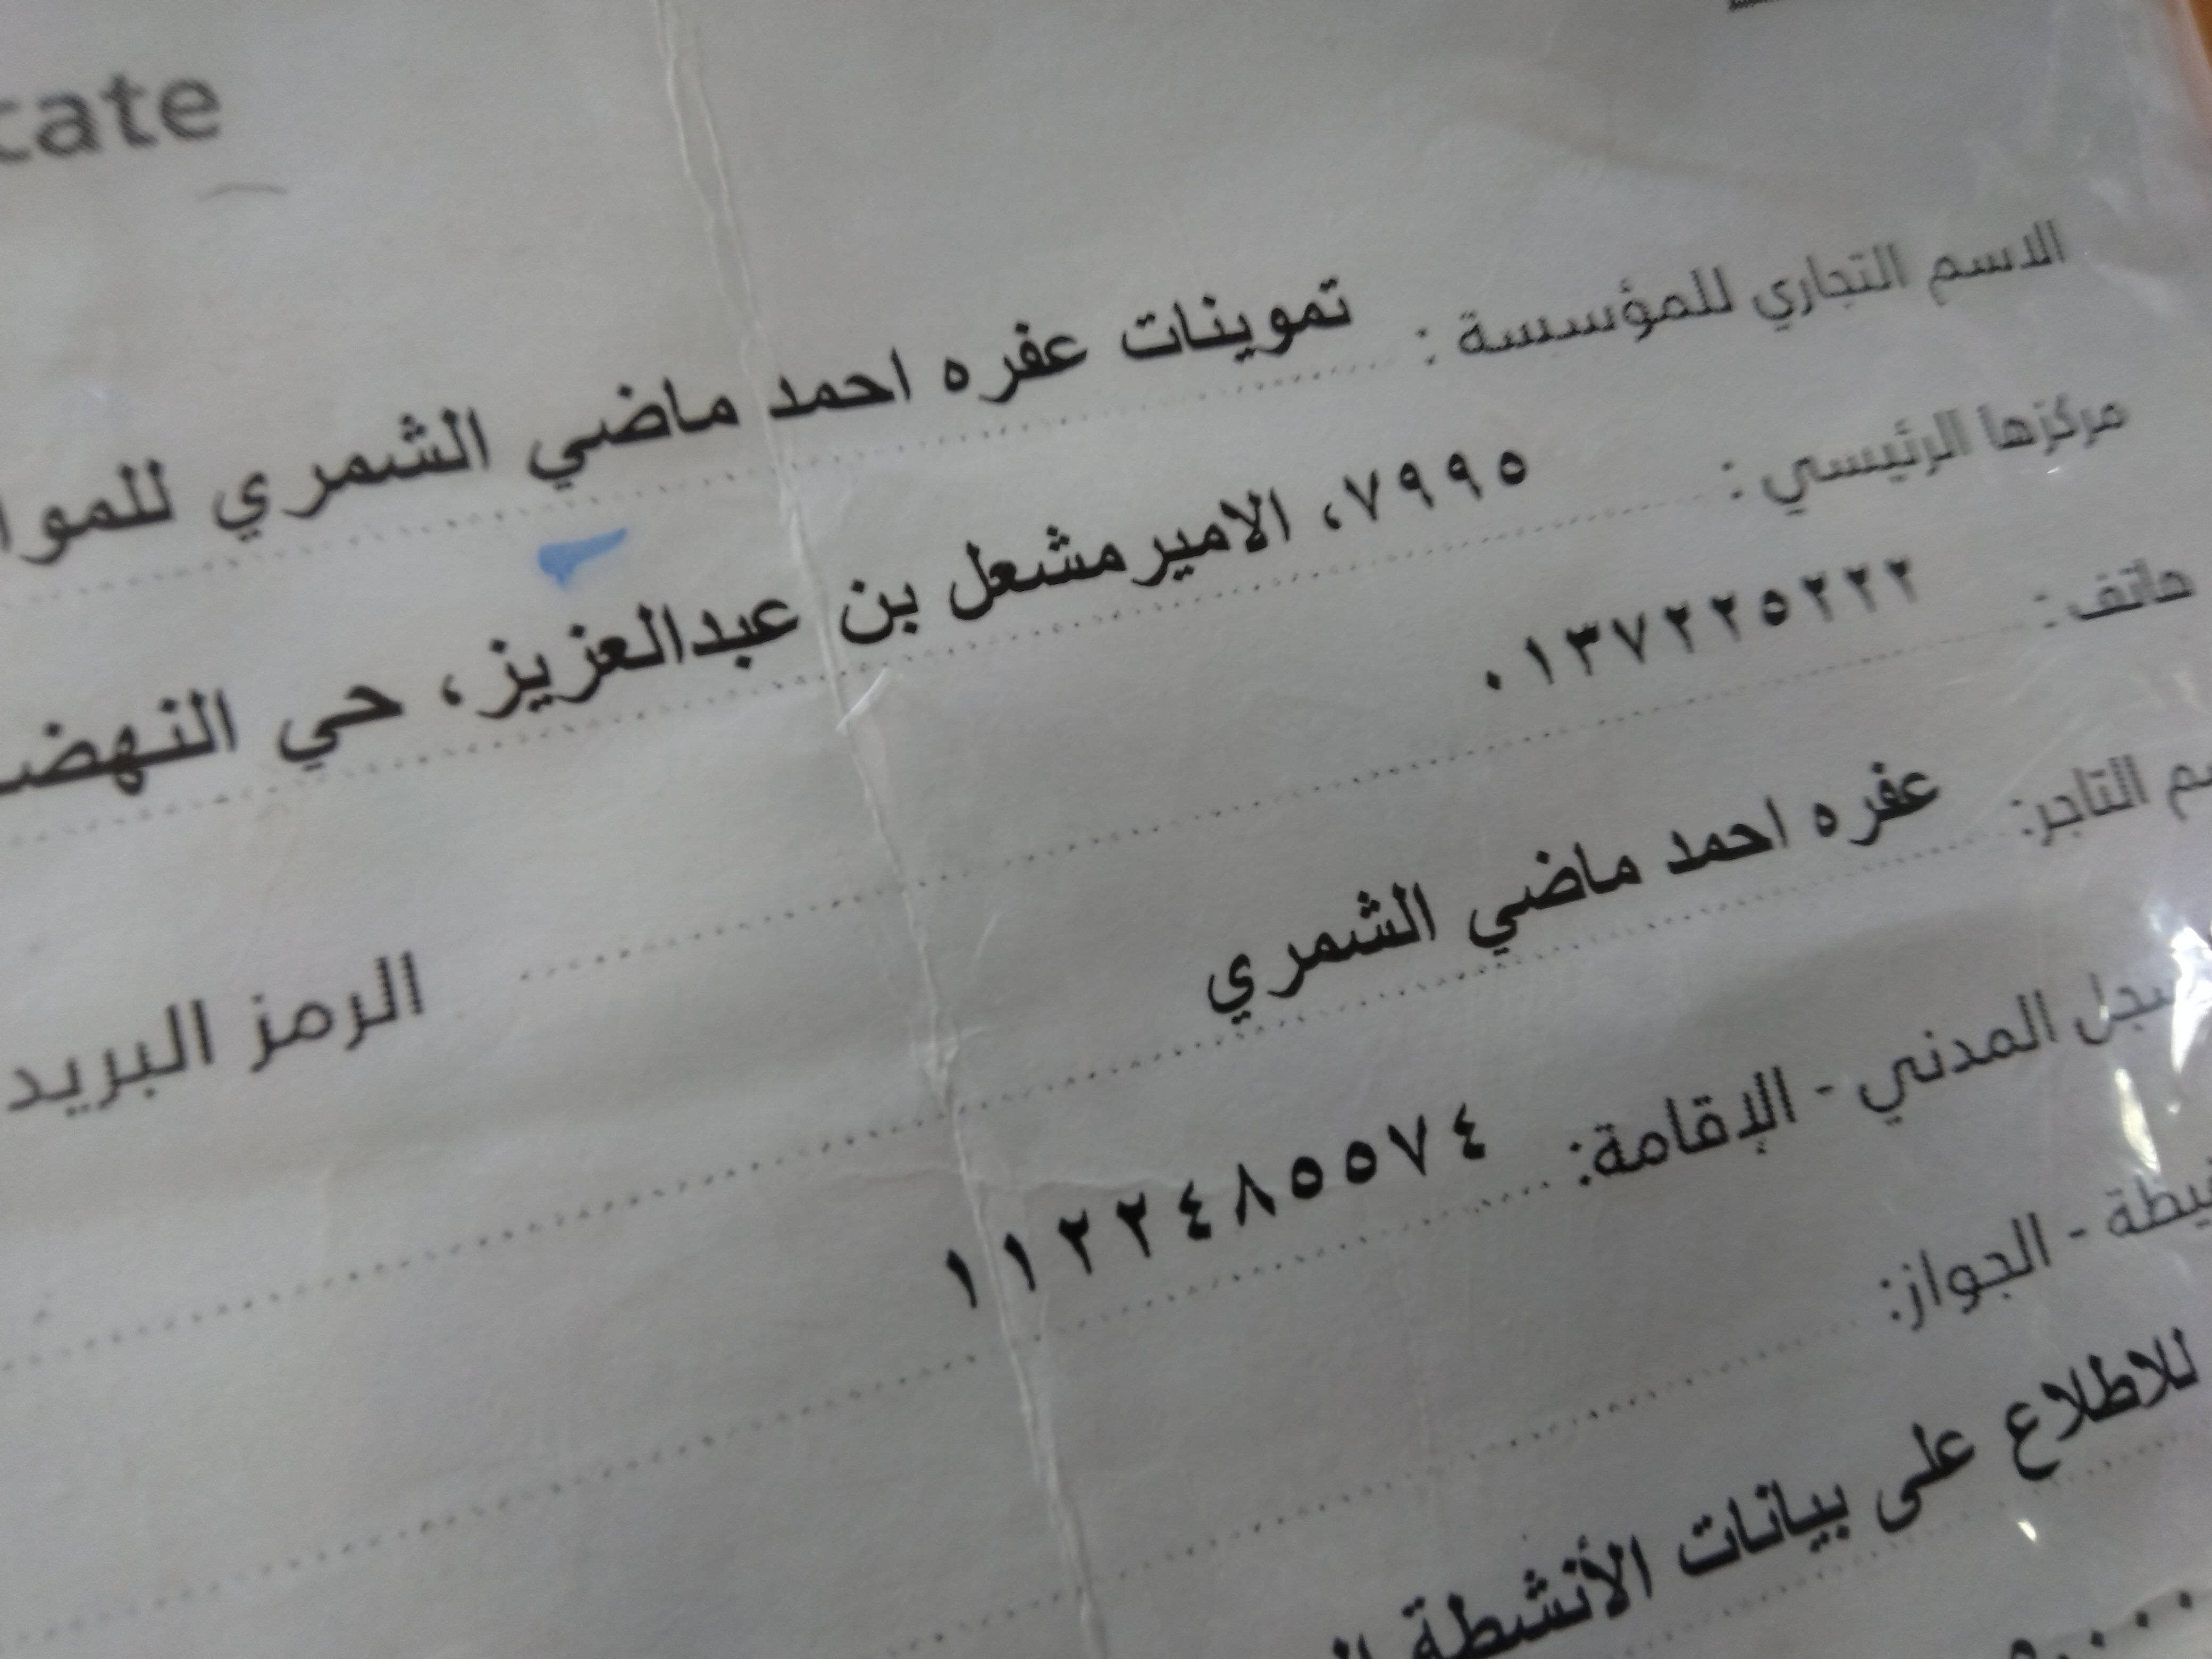 الاسم التجاري للمؤسسة : تموينات عفره احمد ماضي الشمري
مركزها الرئيسي : ٧٩٩٥، الامير مشعل بن عبدالعزيز، حي
هاتف : ٠١٣٧٢٢٥٢٢٢
الرمز
التاجر: عفره احمد ماضي الشمري
المدني - الإقامة: ١١٢٢٤٨٥٥٧٤
- الجواز:
للاطلاع على بيانات الأنشطة